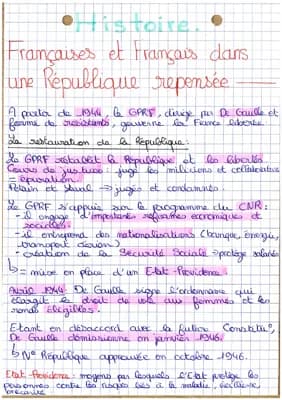 Histoire.
Françaises et Français dans
une République repensée
A partir de 1944, le GPRF, dirigé par De Gaulle et
formé de résistants, gouverne la France libérée.
La restauration de la République:
Le GPRF rétablit la République et les libertés
Cours de justice: juge les miliciens et collaborateurs
= épuration.
Pétain et Laval → jugés et condamnés.
Le GPRF s'appuie sur le programme du CNR:
- il engage d'importantes réformes économiques et
sociales.
- il entreprend des nationalisations (banque, énergie,
transport
- création de la Sécurité Sociale → protège salariés
↳ = mise en place d'un Etat-Providence.
Avril 1944: De Gaulle signe l'ordonnance qui
élargit le droit de vote aux femmes et les
rends éligibles.
Etant en désaccord avec la future Constitut°,
De Gaulle démissionne en janvier 1946.
↳ IV° République approuvée en octobre 1946.
Etat-Providence: moyens par lesquels l'Etat protège les
personnes contre les risques liés à la maladie, vieillesse,
précarité